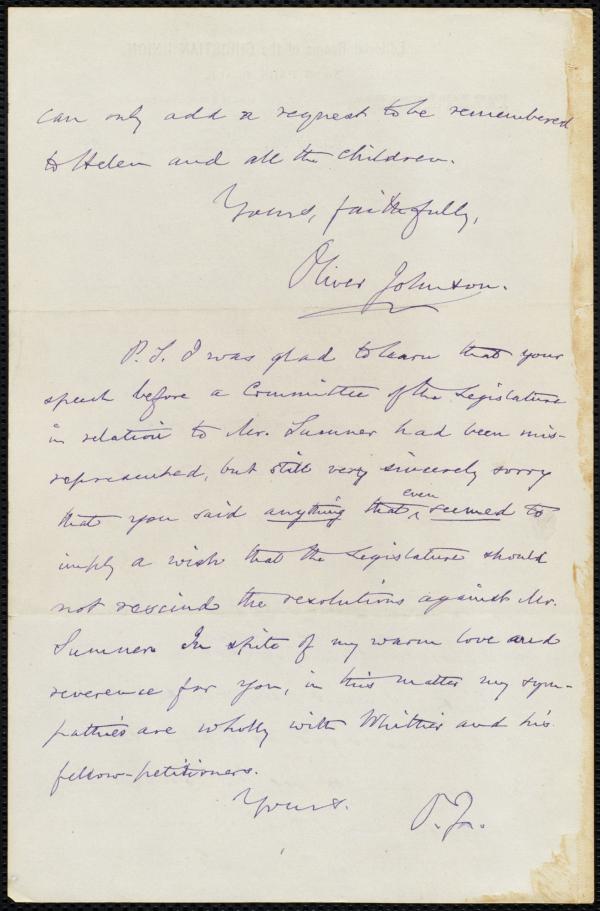 can only add a request to be remembered
to Helen and all the children.
Yours, faithfully,
Oliver Johnson.
P.S. I was glad to learn that your
speech before a Committee of the Legislature
in relation to Mr. Sumner had been mis-
represented, but still very sincerely sorry
that you said anything that even seemed to
imply a wish that the Legislature should
not rescind the resolutions against Mr.
Sumner. In spite of my warm love and
reverence for you, in this matter my sym-
pathies are wholly with Whittier and his
fellow-petitioners.
Yours.
O. Jn.